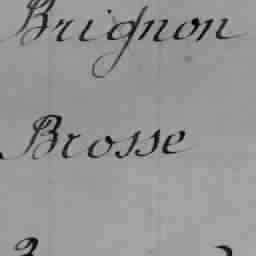 Brignon
Brosse